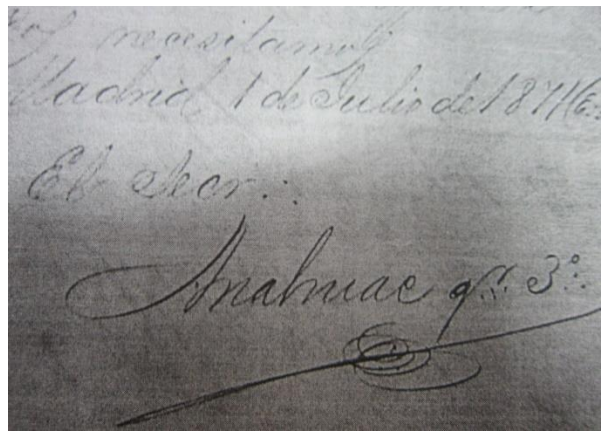 necesitamos
Madrid 1 de Julio de 1871 (E∴
El Secr∴
Anahuac gr∴ 3º∴